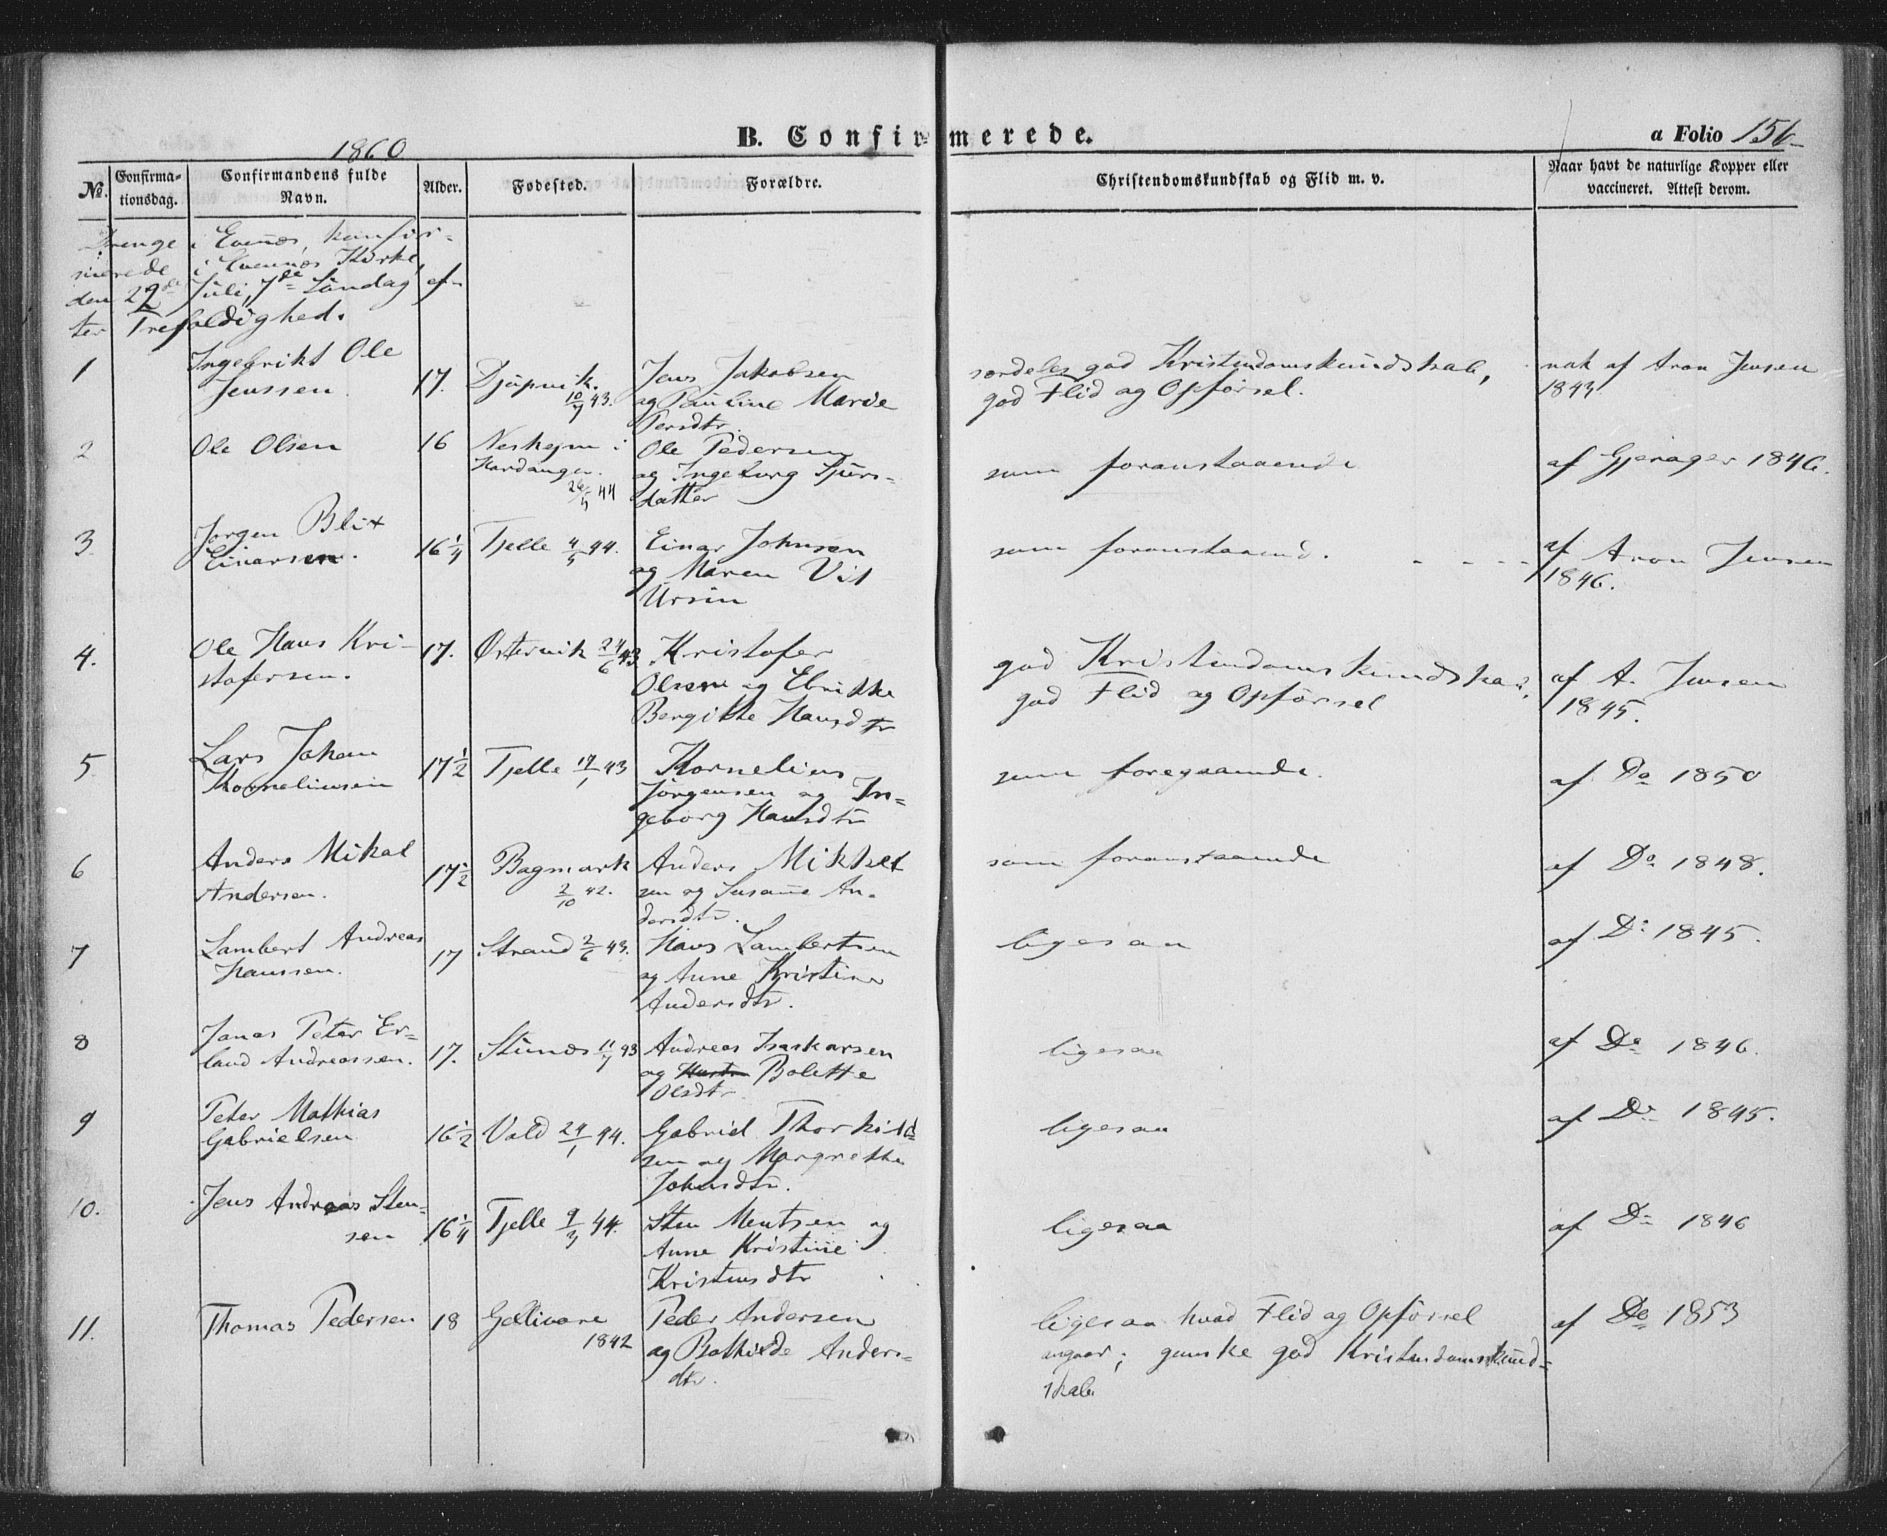 1860
B. Confirmerede.
a Folio 156
No.
Confirma-
tionsdag.
Confirmandens fulde
Navn.
Alder.
Fødested.
Forældre.
Christendomskundskab og Flid m. v.
Naar havt de naturlige Kopper eller
vaccineret. Attest derom.
Drenge i Evenæs, konfir-
merede i Evenæs Kirke
den 22de Juli, 7de Søndag ef-
ter Trefoldighed.
1 Ingebrikt Ole
Jenssen
17. Djupvik.
10/7 43.
Jens Jakobsen
og Pauline Marie
Persdtr.
særdeles god Kristendomskundskab,
god Flid og Opførsel.
vak af Aron Jensen
1843
2 Ole Olsen 16
i
Hardanger.
26/5 44
Ole Pedersen
og Ingeborg Sjurs-
datter
som foranstaaende
af Gjerager 1846.
3 Jørgen Blix
Einarsen.
16 1/4 Tjelle 4/4 44.
Einar Johnsen
og Maren
Ursin
som foranstaaend.
af Aron Jensen
1846.
4. Ole Hans Kri-
stofersen.
17. Østervik 24/6 43
Kristofer
Olsen og Ebrikke
Bergitte Hansdtr
god Kristendomskundskab,
god Flid og Opførsel
af A. Jensen
1845.
5 Lars Johan
Korneliussen
17 1/2 Tjelle 17/1 43
Kornelius
Jørgensen og In-
geborg Hansdtr
som foregaaende.
af Do 1850
6 Anders Mikal
Andersen.
17 1/2 Bogmark
2/10 42.
Anders Mikkel
sen og Susanne An-
dersdtr.
som foranstaaende
af Do 1848.
7 Lambert Andreas
Hanssen.
17 Strand 2/6 43.
Hans Lambertsen
og Anne Kristine
Andersdtr.
ligesaa
af Do 1845.
8 Jonas Peter Er-
land Andreassen.
17. Stunæs 11/7 43
Andreas Isaksen
og Bolette
Olsdtr.
ligesaa
af Do 1846.
9 Peter Mathias
Gabrielsen
16 1/2 Vold 24/1 44.
Gabriel Thorkild-
sen og Margrethe
Johnsdtr.
ligesaa
af Do 1845.
10. Jens Andreas Sten-
sen
16 1/4 Tjelle 9/3 44.
Sten Mentsen og
Anne Kristine
Kristensdtr
ligesaa
af Do 1846
11. Thomas Pedersen 18 Gellivare
1842
Peder Andersen
og Bothilde Anders-
dtr.
ligesaa hvad Flid og Opførsel
angaar; ganske god Kristendomskund-
skab
af Do 1853